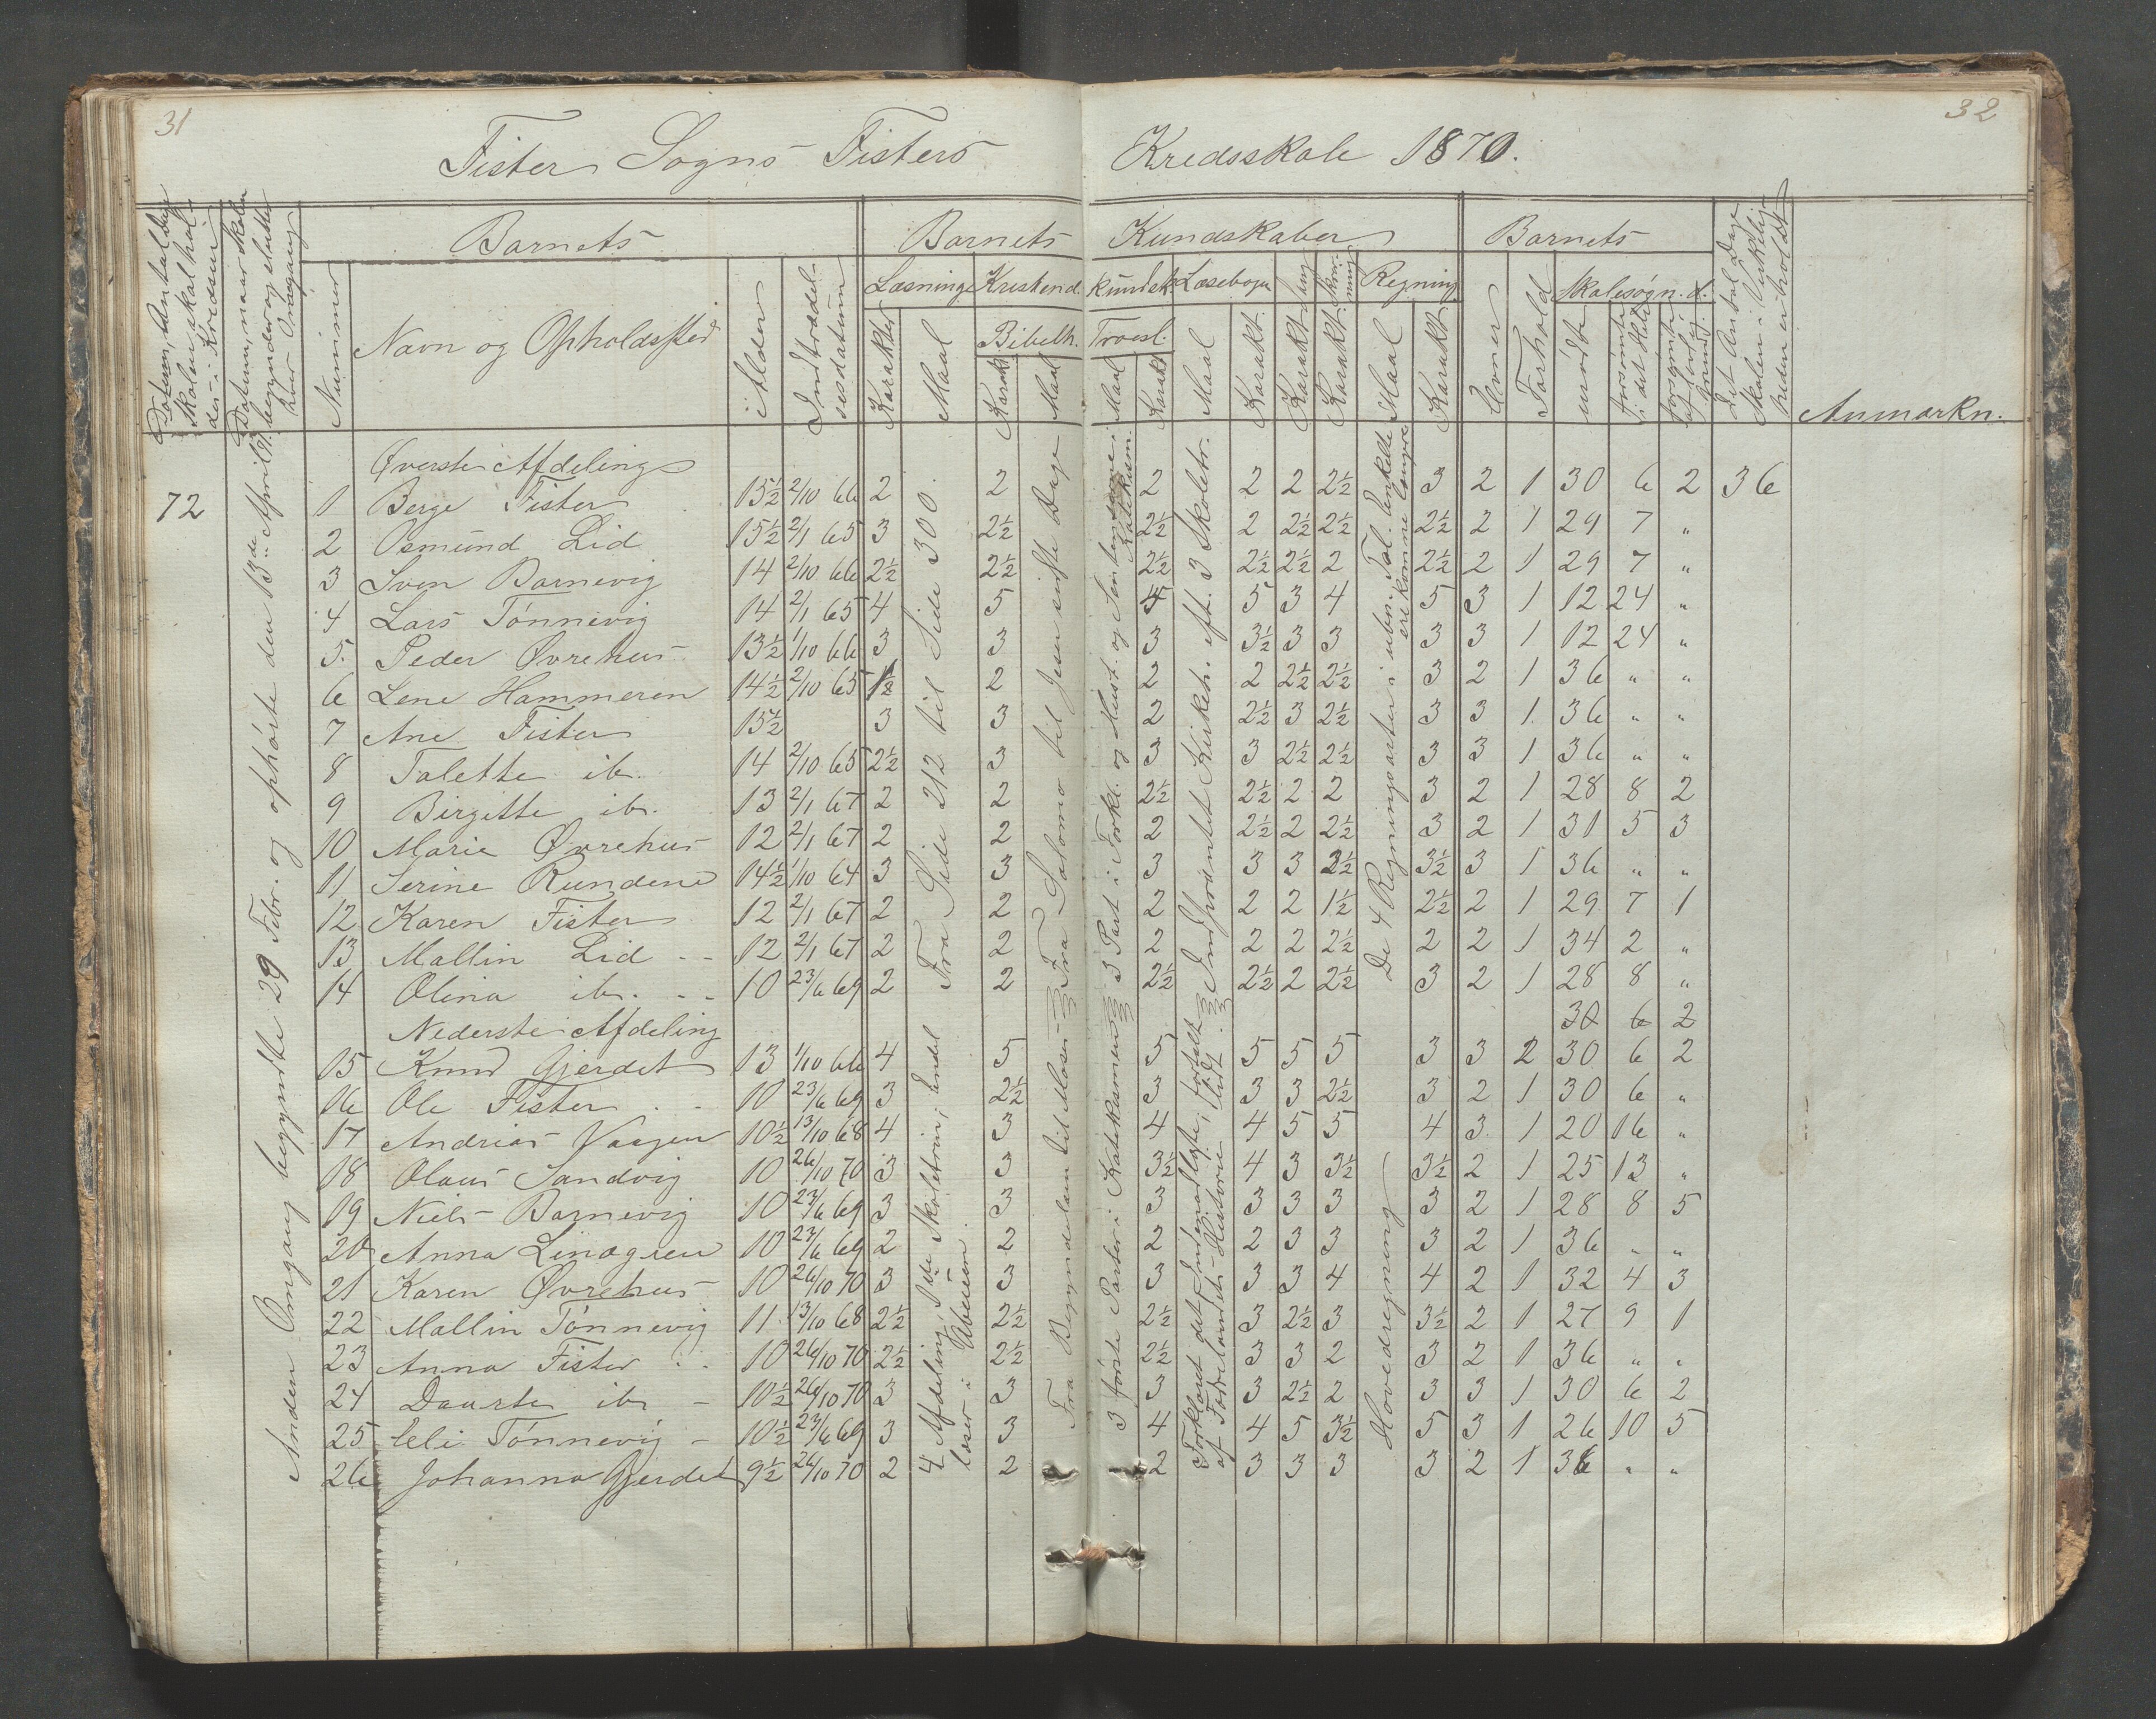 31
32
Fister Sogns Fisters Kredsskole 1870.
Datum, Antal Dage Skolen skal holdes i Kredsen
Datum, naar Skolen begynder og slutter hver Omgang
Nummer
Barnets
Navn og Opholdssted
Alder
Indtrædelsesdatum
Barnets Kundskaber
Læsning
Karakter
Maal
Kristend. kundsk.
Bibelh.
Karakt
Maal
Troesl.
Maal
Karakt
Læsebogen
Maal
Karakt.
Sang
Karakt
Skrivning
Karakt.
Regning
Maal
Karakt.
Barnets
Evner
Forhold
Skolesøgn. d.
mødte
forsømte i det Hele
forsømte af lovlig Grund
Det Antal Dage Skolen i Virkeligheden er holdt
Anmærkn.
Anden Omgang begyndte 29 Febr. og ophørte den 13de April
Øverste Afdeling
72 1 Berge Fister 15½ 2/10 66 2 2 2 2 2 2½ 3 2 1 30 6 2 36
2 Osmund Lid 15½ 2/1 65 3 2½ 2½ 2 2½ 2½ 2½ 2 1 29 7 "
3 Sven Barnevig 14 2/10 66 2½ 2½ 2½ 2½ 2½ 2 2½ 2 1 29 7 "
4 Lars Tønnevig 14 2/1 65 4 5 4 5 3 4 5 3 1 12 24 "
5. Peder Øvrehus 13½ 1/10 66 3 3 3 3½ 3 3 3 3 1 12 24 "
6 Lene Hammeren 14½ 2/10 65 1½ 2 2 2 2½ 2½ 3 2 1 36 " "
7 Ane Fister 15½ 3 3 2 2½ 3 2½ 3 3 1. 36 " "
8 Talette ib. 14 2/10 65 2½ 3 3 3 2½ 2½ 3 3 1 36 " "
9 Birgitte ib. 13 2/1 67 2 2 2½ 2½ 2 2 3 2 1 28 8 2
10 Marie Øvrehus 12 2/1 67 2 2 2 2½ 2 2½ 3 2 1 31 5 3
11 Serine Rundene 14½ 1/10 64 3 3 3 3 3 2½ 3½ 3 1 36 " "
12 Karen Fister 12 2/1 67 2 2 2 2 2 1½ 2½ 2 1 29 7 1
13 Mallin Lid 12 2/1 67 2 2 2 2 2 2½ 2 2 1 34 2 "
14 Olina ib. 10 23/6 69 2 2 2½ 2½ 2 2½ 3 2 1 28 8 "
Fra Side 212 til Side 300.
Fra Salomo til Jesu sidste Dage
3 Part i Forkl. og Hust. og Sentenserne i Katekism.
Indprentet Kirkeh. eft. 3 Skoletr.
De 4 Regningsarter i ubn. Tal. Enkelte ere komne længre
Nederste Afdeling 30 6 2
15 Knud Gjerdet 13 1/10 66 4 5 5 5 5 5 3 3 2 30 6 2
16 Ole Fister 10 23/6 69 3 2½ 3 3 3 2½ 3 2 1 30 6 "
17 Andreas Vaagen 10½ 13/10 68 4 3 4 4 5 5 4 3 1 20 16 "
18 Olaus Sandvig 10 26/10 70 3 3 3½ 4 3 3½ 3½ 2 1 25 13 "
19 Niels Barnevig 10 23/6 69 3 3 3 3 3 3 3 2 1 28 8 5
20 Anna Lindgren 10 23/6 69 2 2 2 2 3 3 3 2 1 36 " "
21 Karen Øvrehus 10 26/10 70 3 3 3 3 3 4 4 2 1 32 4 3
22 Mallin Tønnevig 11 13/10 68 2½ 2½ 2½ 3 2½ 3 3½ 2 1 27 9 1
23 Anna Fister 10 26/10 70 2½ 2½ 2½ 3 3 2 3 2 1 36 " "
24 Daarte ib 10½ 26/10 70 3 3 3 3 2½ 2 3 3 1 30 6 2
25 Eli Tønnevig 10½ 23/6 69 3 3 4 4 5 3½ 5 3 1 26 10 5
26 Johanna Gjerdet 9½ 26/10 70 2 2 2 3 3 3 3 2 1 36 " "
4 Afdeling, 1ste Skoletrin; Endel læser i Abeceen.
Fra Begyndelsen til Moses
3 første Parter i Katekismus
Forklaret det Indenadlæste, fortalt af Fædrelandets Historie
Hovedregning